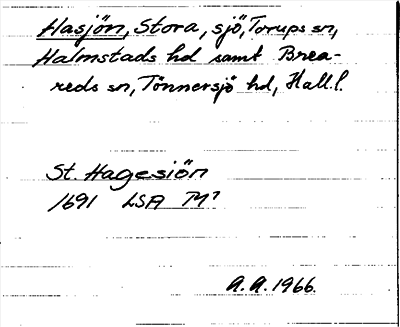 Hasjön, Stora, sjö, Torups sn,
Halmstads hd samt Brea-
reds sn, Tönnersjö hd, Hall.l.
St. Hagesiön
1691 LSA M⁷
A.A. 1966.